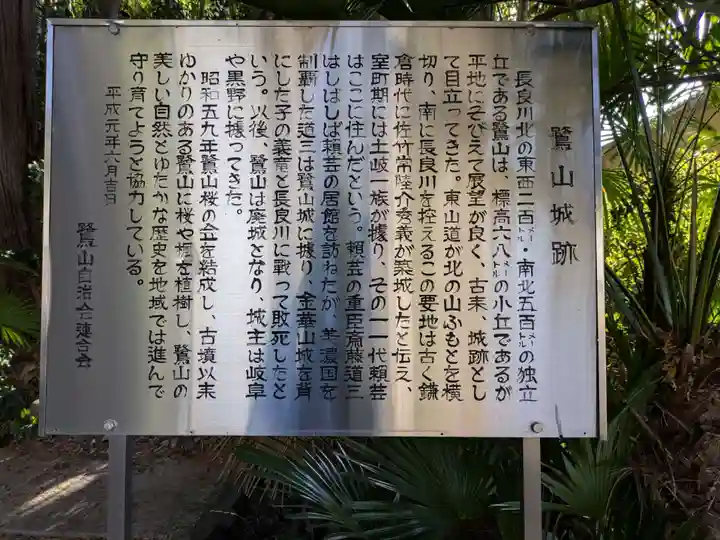 鷺山城跡
長良川北の東西二百メートル・南北五百メートルの独立
丘である鷺山は、標高六八メートルの小丘であるが
平地にそびえて展望が良く、古来、城跡とし
て目立ってきた。東山道が北の山ふもとを横
切り、南に長良川を控えるこの要地は古く鎌
倉時代に佐竹常陸介秀義が築城したと伝え、
室町期には土岐一族が據り、その一一代頼芸
はここに住んだという。頼芸の重臣斎藤道三
はしばしば頼芸の居館を訪ねたが、美濃国を
制覇した道三は鷺山城に據り、金華山城を背
にした子の義竜と長良川に戦って敗死したと
いう。以後、鷺山は廃城となり、城主は岐阜
や黒野に據ってきた。
昭和五九年鷺山桜の会を結成し、古墳以来
ゆかりのある鷺山に桜や楓を植樹し、鷺山の
美しい自然とゆたかな歴史を地域では進んで
守り育てようと協力している。
平成元年六月吉日
鷺山自治会連合会